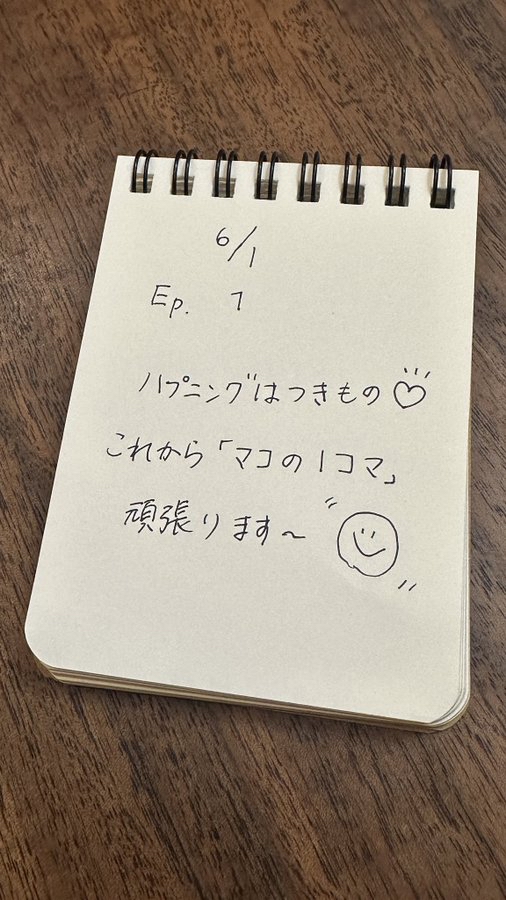 6/1
Ep. 1
ハプニングはつきもの♡
これから「マコの1コマ」
頑張ります〜